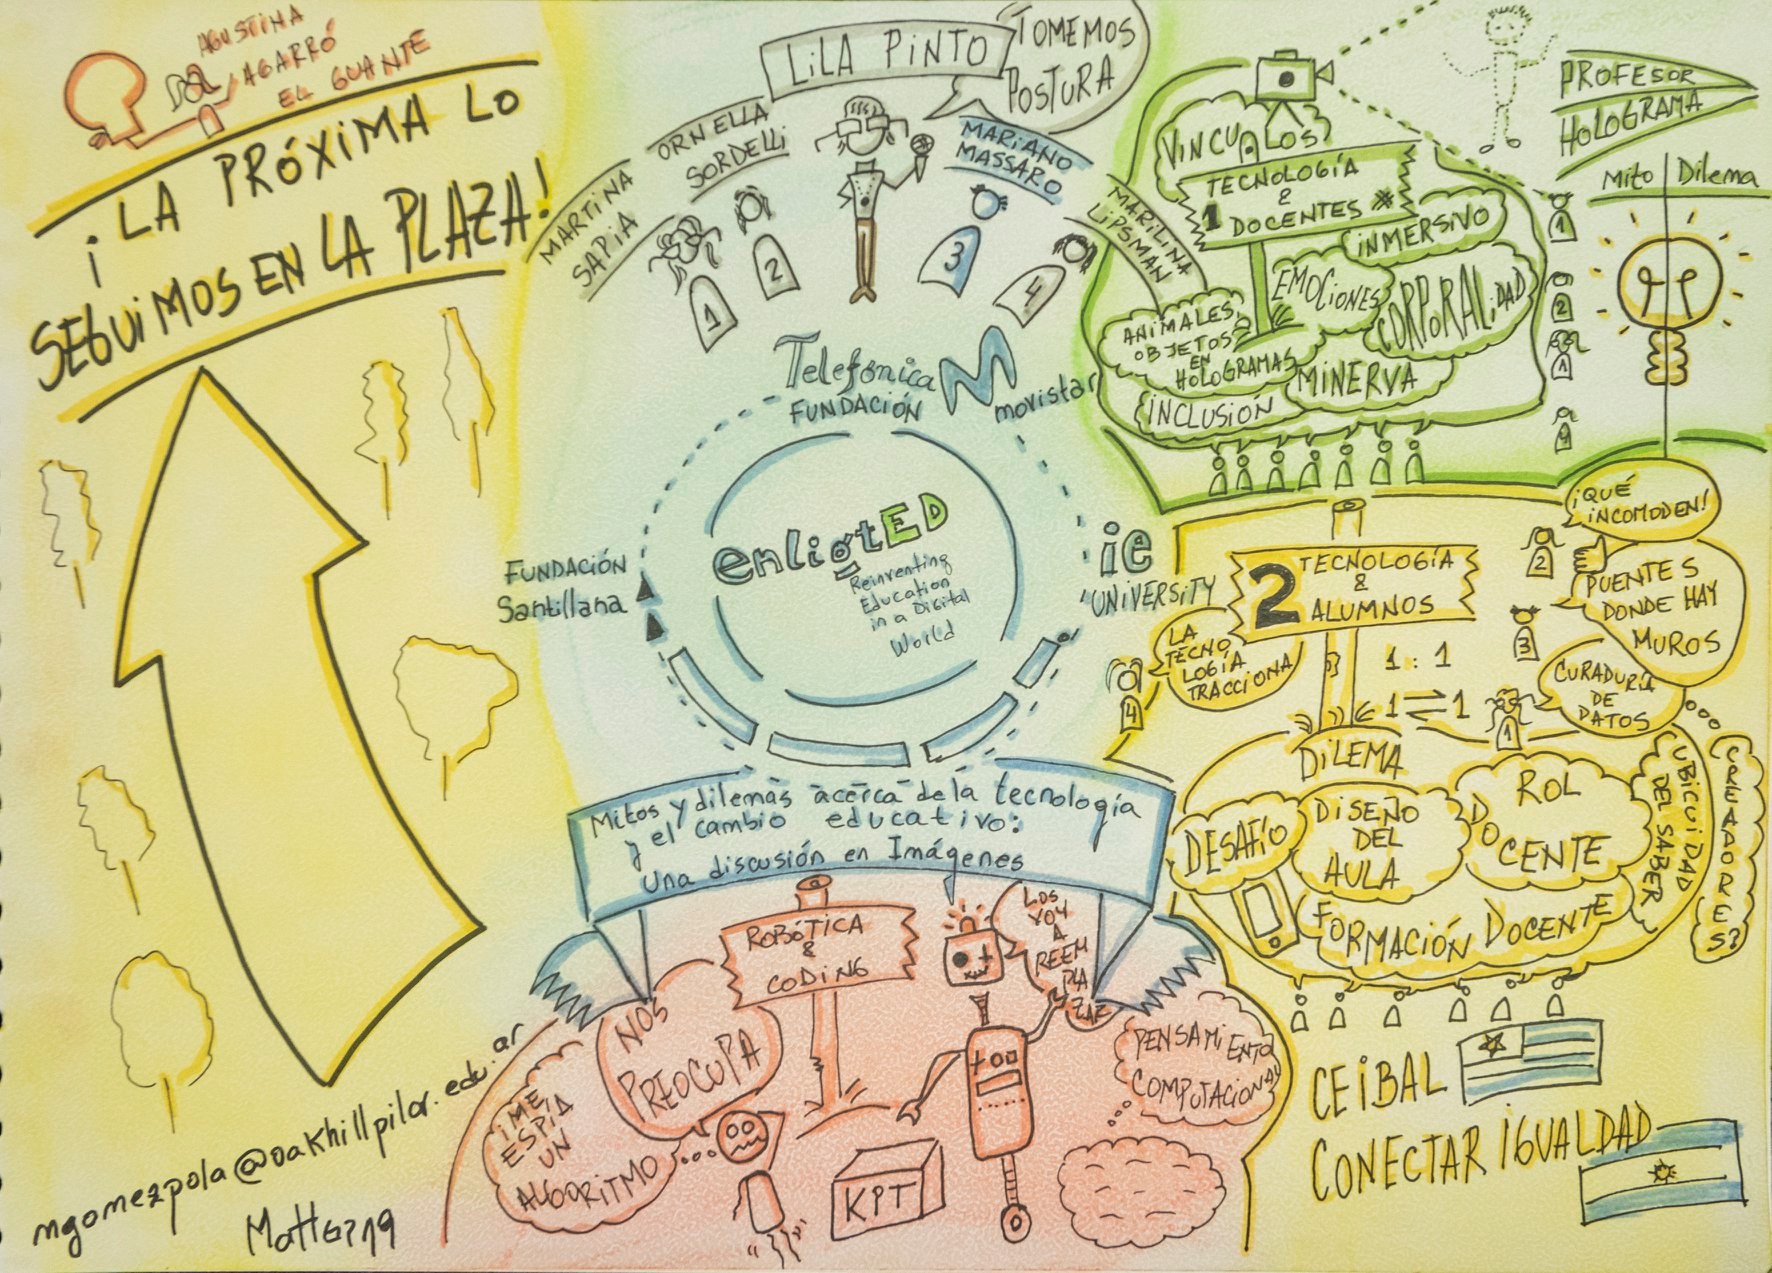 AGUSTINA
AGARRÓ
EL GUANTE
¡LA PRÓXIMA LO
SEGUIMOS EN LA PLAZA!
LILA PINTO
TOMEMOS
POSTURA
MARTINA
SAPIA
ORNELLA
SORDELLI
MARIANO
MASSARO
MARILINA
LIPSMAN
1
2
3
4
Telefónica
FUNDACIÓN
movistar
FUNDACIÓN
Santillana
ie
UNIVERSITY
enligtED
Reinventing
Education
in a Digital
World
Mitos y dilemas acerca de la tecnología
y el cambio educativo:
Una discusión en Imágenes
VINCULOS
TECNOLOGÍA
&
1 DOCENTES *
INMERSIVO
EMOCIONES
CORPORALIDAD
ANIMALES,
OBJETOS
EN
HOLOGRAMAS
MINERVA
INCLUSIÓN
PROFESOR
HOLOGRAMA
Mito Dilema
1
2
1
4
¡QUÉ
INCOMODEN!
2
PUENTES
DONDE HAY
MUROS
3
CURADURÍA
DE
DATOS
1
2 TECNOLOGÍA
&
ALUMNOS
LA
TECNO
LOGÍA
TRACCIONA
4
1 : 1
1 ⇌ 1
DILEMA
DESAFÍO
DISEÑO
DEL
AULA
ROL
DOCENTE
UBICUIDAD
DEL SABER
CREADORES?
FORMACIÓN DOCENTE
CEIBAL
CONECTAR IGUALDAD
ROBÓTICA
&
CODING
LOS
VOY
A
REEM
PLA
ZAR
NOS
PREOCUPA
¡ME
ESPÍA
UN
ALGORITMO...
PENSAMIENTO
COMPUTACIONAL
KPT
mgomezpola@oakhillpilar.edu.ar